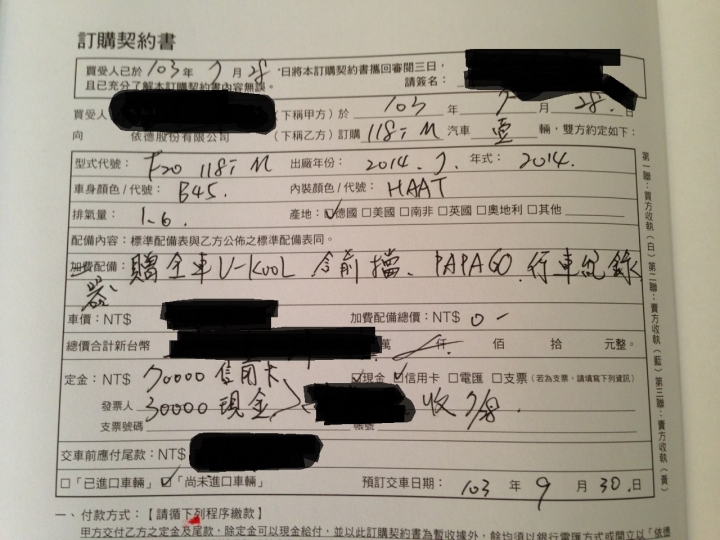 訂購契約書
買受人已於 103 年 7 月 28 日將本訂購契約書攜回審閱三日，
且已充分了解本訂購契約書內容無誤。 請簽名：
買受人 (下稱甲方) 於 103 年 7 月 28 日
向 依德股份有限公司 (下稱乙方) 訂購 118i M 汽車 壹 輛，雙方約定如下：
型式代號： F20 118i M 出廠年份： 2014. 7. 年式： 2014.
車身顏色/代號： B45. 內裝顏色/代號： HAAT
排氣量： 1.6. 產地：☑德國 □美國 □南非 □英國 □奧地利 □其他
配備內容：標準配備表與乙方公佈之標準配備表同。
加費配備： 贈全車V-KOOL 含前擋、PAPAGO 行車紀錄
器、
車價：NT$ 加費配備總價：NT$ 0 -
總價合計新台幣 萬 仟 佰 拾 元整。
定金：NT$ 70000 信用卡 ☑現金 ☑信用卡 □電匯 □支票 (若為支票，請填寫下列資訊)
發票人 30000 現金 收
支票號碼 帳號
交車前應付尾款：NT$
□「已進口車輛」 ☑「尚未進口車輛」 預訂交車日期： 103 年 9 月 30 日
一、付款方式：【請循下列程序繳款】
甲方交付乙方之定金及尾款，除定金可以現金給付，並以此訂購契約書為暫收據外，餘均須以銀行電匯方式或開立以「依德
第一聯：買方收執(白) 第二聯：賣方收執(藍) 第三聯：賣方收執(黃)